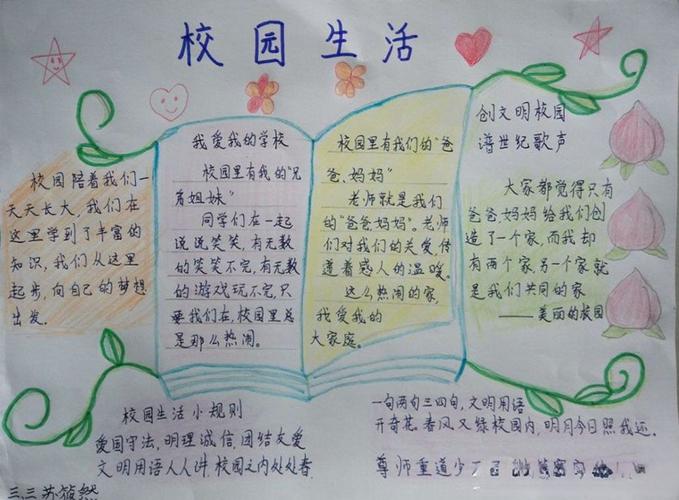 校园生活
校园陪着我们一
天天长大，我们在
这里学到了丰富的
知识，我们从这里
起步，向自己的梦想
出发。
我爱我的学校
校园里有我的"兄
弟姐妹"
同学们在一起
说说笑笑，有无数
的笑笑不完，有无数
的游戏玩不完，只
要我们在，校园里总
是那么热闹。
校园里有我们的"爸
爸、妈妈"
老师就是我们
的"爸爸妈妈"。老师
们对我们的关爱，传
递着感人的温暖。
这么热闹的家，
我爱我的
大家庭。
创文明校园
谱世纪歌声
大家都觉得只有
爸爸妈妈给我们创
造了一个家，而我却
有两个家，另一个家就
是我们共同的家
——美丽的校园
校园生活小规则
爱国守法，明理诚信，团结友爱
文明用语人人讲，校园之内处处春
一句两句三四句，文明用语
开奇花，春风又绿校园内，明月今日照我还。
尊师重道少了
三.三苏筱然